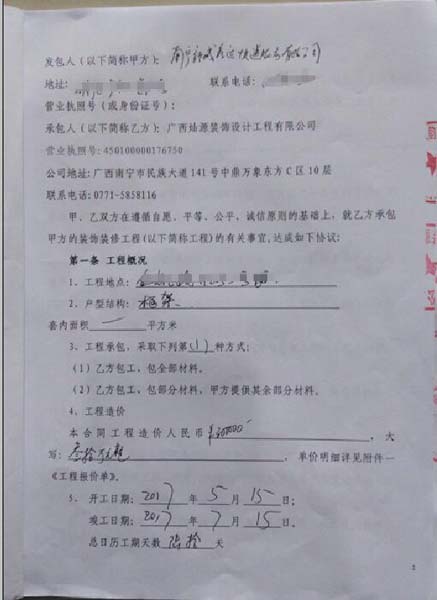 发包人（以下简称甲方）：南宁
地址： 联系电话：
营业执照号（或身份证号）：
承包人（以下简称乙方）：广西灿源装饰设计工程有限公司
营业执照号：450100000176750
公司地址：广西南宁市民族大道141号中鼎万象东方C区10层
联系电话：0771-5858116
甲、乙双方在遵循自愿、平等、公平、诚信原则的基础上，就乙方承包
甲方的装饰装修工程（以下简称工程）的有关事宜，达成如下协议：
第一条 工程概况
1、工程地点：
2、户型结构：框架
套内面积 一 平方米
3、工程承包，采取下列第(1)种方式：
（1）乙方包工，包全部材料。
（2）乙方包工，包部分材料，甲方提供其余部分材料。
4、工程造价
本合同工程造价人民币 ，大
写： ，单价明细详见附件一
《工程报价单》。
5、开工日期：2017年5月15日；
竣工日期：2017年7月15日。
总日历工期天数 陆拾 天
2